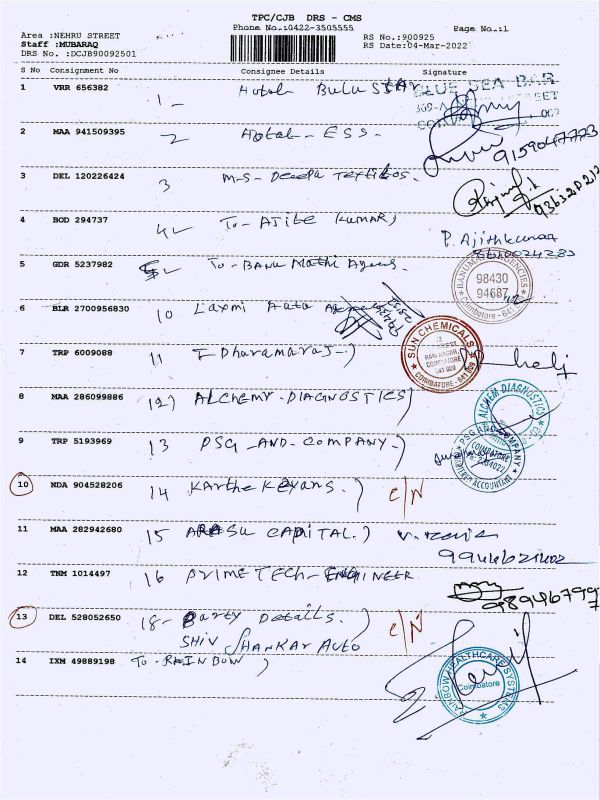 TPC/CJB DRS - CMS
Phone No.:0422-3505555
Page No.:1
Area :NEHRU STREET
Staff :MUBARAQ
DRS No. :DCJB90092501
RS No.:900925
RS Date:04-Mar-2022
S No Consignment No Consignee Details Signature
1 VRR 656382 1- Hotel BLUE SEA BAR
2 MAA 941509395 2 Hotel - ESS.
9159047723
3 DEL 120226424 3 M-S- Deepa Textiles.
4 BOD 294737 4 To - AJITE KUMAR)
P. Ajithkumar
5 GDR 5237982 5 To - BANU Mathi Agens.
BANUMATHI AGENCIES
98430
94687
Coimbatore - 641
6 BLR 2700956830 10 Laxmi Auto
SUN CHEMICALS
RAM NAGAR,
COIMBATORE
641 009
COIMBATORE - 641 009
7 TRP 6009088 11 T. Dharamaraj -)
8 MAA 286099886 12) ALCHEMY - DIAGNOSTICS)
ALCHEM DIAGNOSTICS
9 TRP 5193969 13 PSG - AND - COMPANY -)
PSG AND COMPANY
COIMBATORE
ACCOUNTANT
10 NDA 904528206 14 Karthe Keyans. ) C/N
11 MAA 282942680 15 ARASU CAPITAL. )
12 TNM 1014497 16 PRIME TECH - ENGINEER
13 DEL 528052650 18- Party Details. ) C/N
SHIV SHANKAR AUTO
14 IXM 49889198 TO - RAINBOW )
RAINBOW HEALTHCARE SYSTEMS
Coimbatore